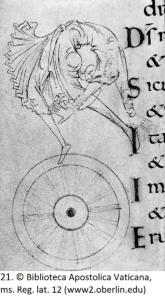 di
Dſr
&
S ic
&
I ta
&
I m
&
E ru
21. © Biblioteca Apostolica Vaticana,
ms. Reg. lat. 12 (www2.oberlin.edu)